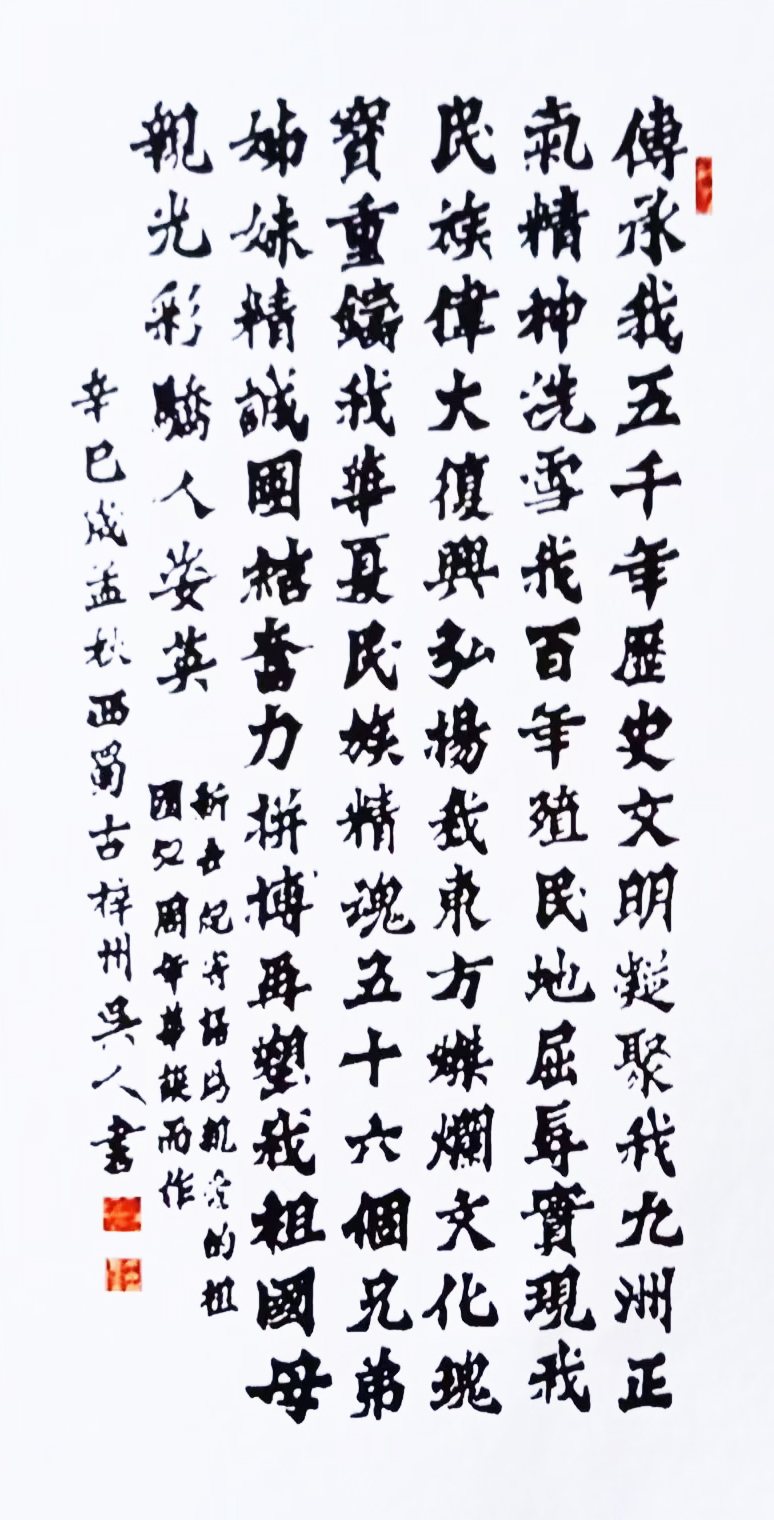 傳承我五千年歷史文明凝聚我九州正
氣精神洗雪我百年殖民地屈辱實現我
民族偉大復興弘揚我東方燦爛文化瑰
寶重鑄我華夏民族精魂五十六個兄弟
姊妹精誠團結奮力拼搏再塑我祖國母
親光彩驕人姿英
新世紀寄語為親愛的祖
國五二周年華誕而作
辛巳歲孟秋西蜀古梓州吳人書